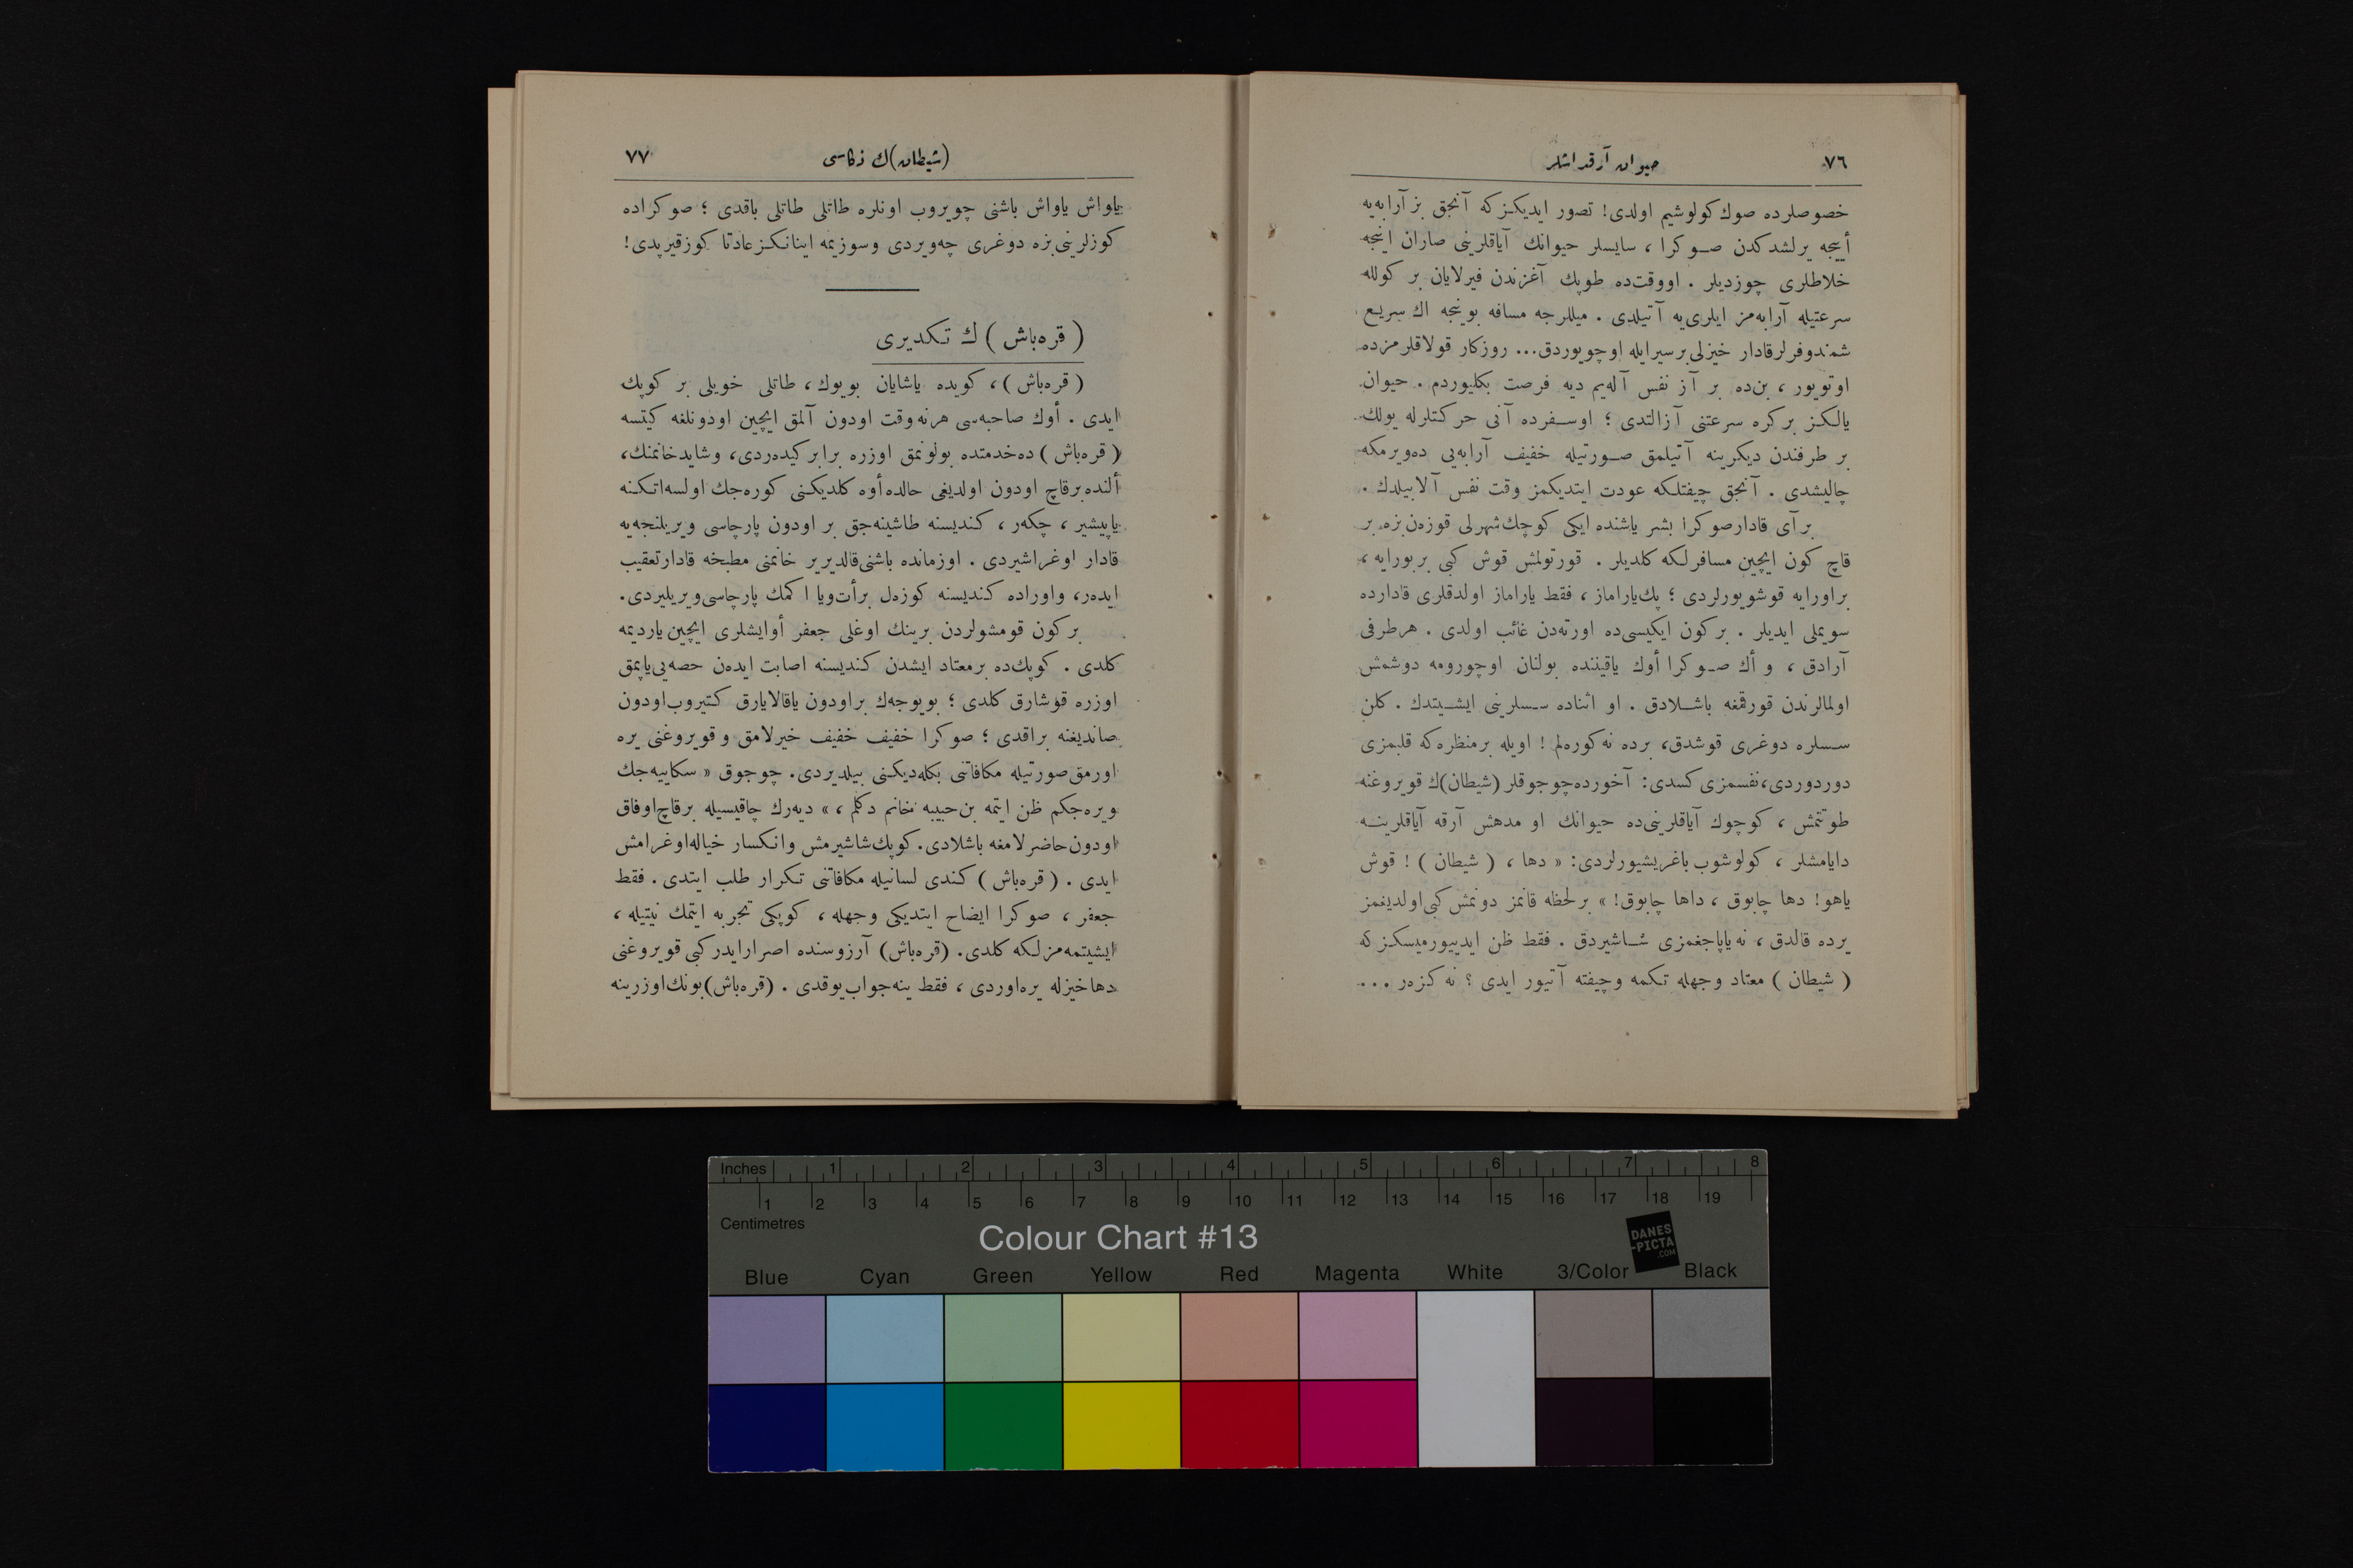 ٧٦
حيوان آرقداشلر
خصوصلرده صوك كولوشيم اولدى! تصور ايديكز كه آنجق بز آرابه‌يه
أييجه يرلشدكدن صوكرا ، سايسلر حيوانك آياقلرينى صاران اينجه
خلاطلرى چوزديلر . اووقت‌ده طوپك آغزندن فيرلايان بر كولله
سرعتيله آرابه‌مز ايلرى‌يه آتيلدى . ميللرجه مسافه بوينجه اك سريع
شمندوفرلرقادار خيزلى برسيرايله اوچويوردق... روزكار قولاقلرمزده
اوتويور ، بن‌ده بر آز نفس آله‌يم ديه فرصت بكليوردم . حيوان
يالكز بركره سرعتنى آزالتدى ؛ اوسفرده آنى حركتلرله يولك
بر طرفندن ديكرينه آتيلمق صورتيله خفيف آرابه‌يى ده‌ويرمكه
چاليشدى . آنجق چيفتلكه عودت ايتديكمز وقت نفس آلابيلدك .
بر آى قادارصوكرا بشر ياشنده ايكى كوچك‌شهرلى قوزه‌ن بزه بر
قاچ كون ايچين مسافرلكه كلديلر . قورتولمش قوش كبى بر بورايه ،
براورايه قوشويورلردى ؛ پك‌ياراماز ، فقط ياراماز اولدقلرى قادارده
سويملى ايديلر . بركون ايكيسى‌ده اورته‌دن غائب اولدى . هرطرفى
آرادق ، و أك صوكرا أوك ياقيننده بولنان اوچورومه دوشمش
اولمالرندن قورقمغه باشلادق . او اثناده سسلرينى ايشيتدك . كلن
سسلره دوغرى قوشدق، برده نه كوره‌لم ! اويله برمنظره‌كه قلبمزى
دوردوردى،نفسمزى كسدى: آخورده‌چوجوقلر (شيطان)ك قويروغنه
طوتمش ، كوچوك آياقلرينى‌ده حيوانك او مدهش آرقه آياقلرينه
دايامشلر ، كولوشوب باغريشيورلردى: « دها ، ( شيطان ) ! قوش
ياهو! دها چابوق ، داها چابوق! » برلحظه قانمز دونمش كبى‌اولديغمز
يرده قالدق ، نه‌ياپاجغمزى شاشيردق . فقط ظن ايدييورميسكز كه
( شيطان ) معتاد وجهله تكمه وچيفته آتيور ايدى ؟ نه كزه‌ر ...
(شيطان)ك ذكاسى
٧٧
ياواش ياواش باشنى چويروب اونلره طاتلى طاتلى باقدى ؛ صوكراده
كوزلرينى‌بزه دوغرى چه‌ويردى وسوزيمه اينانكز عادتا كوزقيرپدى!
( قره‌باش ) ك تكديرى
( قره‌باش )، كويده ياشايان بويوك، طاتلى خويلى بر كوپك
ايدى . أوك صاحبه‌سى هرنه‌وقت اودون آلمق ايچين اودونلغه كيتسه
( قره‌باش ) ده‌خدمتده بولونمق اوزره برابر كيده‌ردى، وشايدخانمنك،
ألنده‌برقاچ اودون اولديغى حالده‌أوه كلديكنى كوره‌جك اولسه‌اتكنه
ياپيشير ، چكه‌ر ، كنديسنه طاشينه‌جق بر اودون پارچاسى ويريلنجه‌يه
قادار اوغراشيردى . اوزمانده باشنى‌قالديرير خانمنى مطبخه قادارتعقيب
ايده‌ر، واوراده كنديسنه كوزه‌ل برأت‌ويا اكمك پارچاسى‌ويريليردى.
بركون قومشولردن برينك اوغلى جعفر أوايشلرى ايچين‌يارديمه
كلدى . كوپك‌ده برمعتاد ايشدن كنديسنه اصابت ايده‌ن حصه‌يى‌ياپمق
اوزره قوشارق كلدى ؛ بويوجه‌ك براودون ياقالايارق كتيروب‌اودون
صانديغنه براقدى ؛ صوكرا خفيف خفيف خيرلامق و قويروغنى يره
اورمق‌صورتيله مكافاتنى بكله‌ديكنى بيلديردى. چوجوق « سكاييه‌جك
ويره‌جكم ظن ايتمه بن‌حبيبه خانم دكلم ، » ديه‌رك چاقيسيله برقاچ‌اوفاق
اودون‌حاضرلامغه باشلادى. كوپك‌شاشيرمش وانكسار خياله‌اوغرامش
ايدى . ( قره‌باش ) كندى لسانيله مكافاتنى تكرار طلب ايتدى . فقط
جعفر ، صوكرا ايضاح ايتديكى وجهله ، كوپكى تجربه ايتمك نيتيله ،
ايشيتمه‌مزلكه كلدى. (قره‌باش) آرزوسنده اصرارايدر كبى قويروغنى
دهاخيزله يره‌اوردى ، فقط ينه‌جواب‌يوقدى . (قره‌باش)بونك‌اوزرينه
Inches 1 2 3 4 5 6 7 8
1 2 3 4 5 6 7 8 9 10 11 12 13 14 15 16 17 18 19
Centimetres
Colour Chart #13
DANES
-PICTA
.COM
Blue Cyan Green Yellow Red Magenta White 3/Color Black